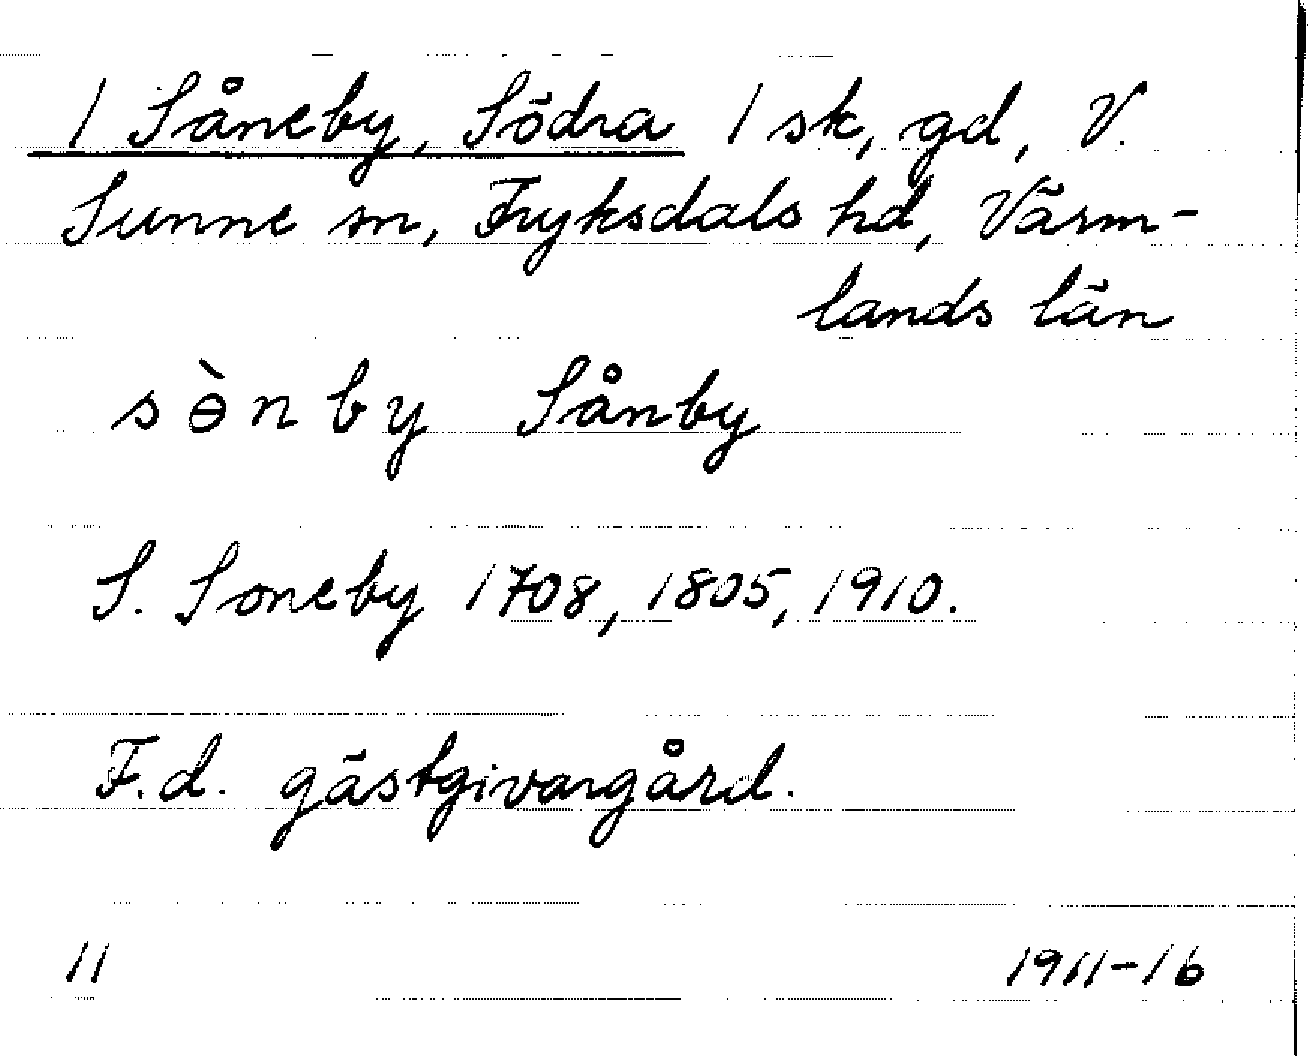 / Såneby, Södra / sk, gd, V.
Sunne sn, Fryksdals hd, Värm-
lands län
s ɵ̀ n b y Sånby
S. Soneby 1708, 1805, 1910.
F.d. gästgivargård.
11 1911-16